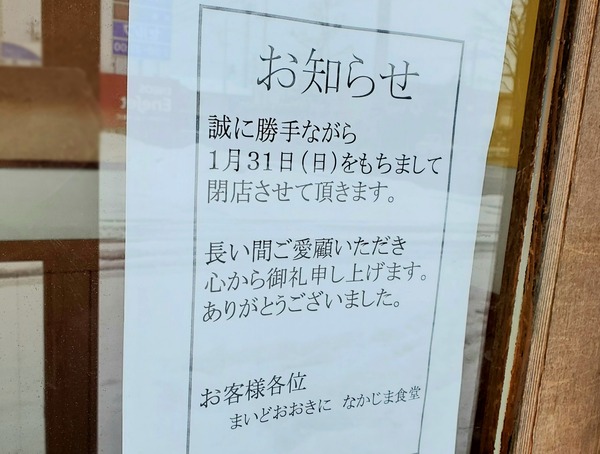 お知らせ
誠に勝手ながら
1月31日(日)をもちまして
閉店させて頂きます。
長い間ご愛顧いただき
心から御礼申し上げます。
ありがとうございました。
お客様各位
まいどおおきに なかじま食堂